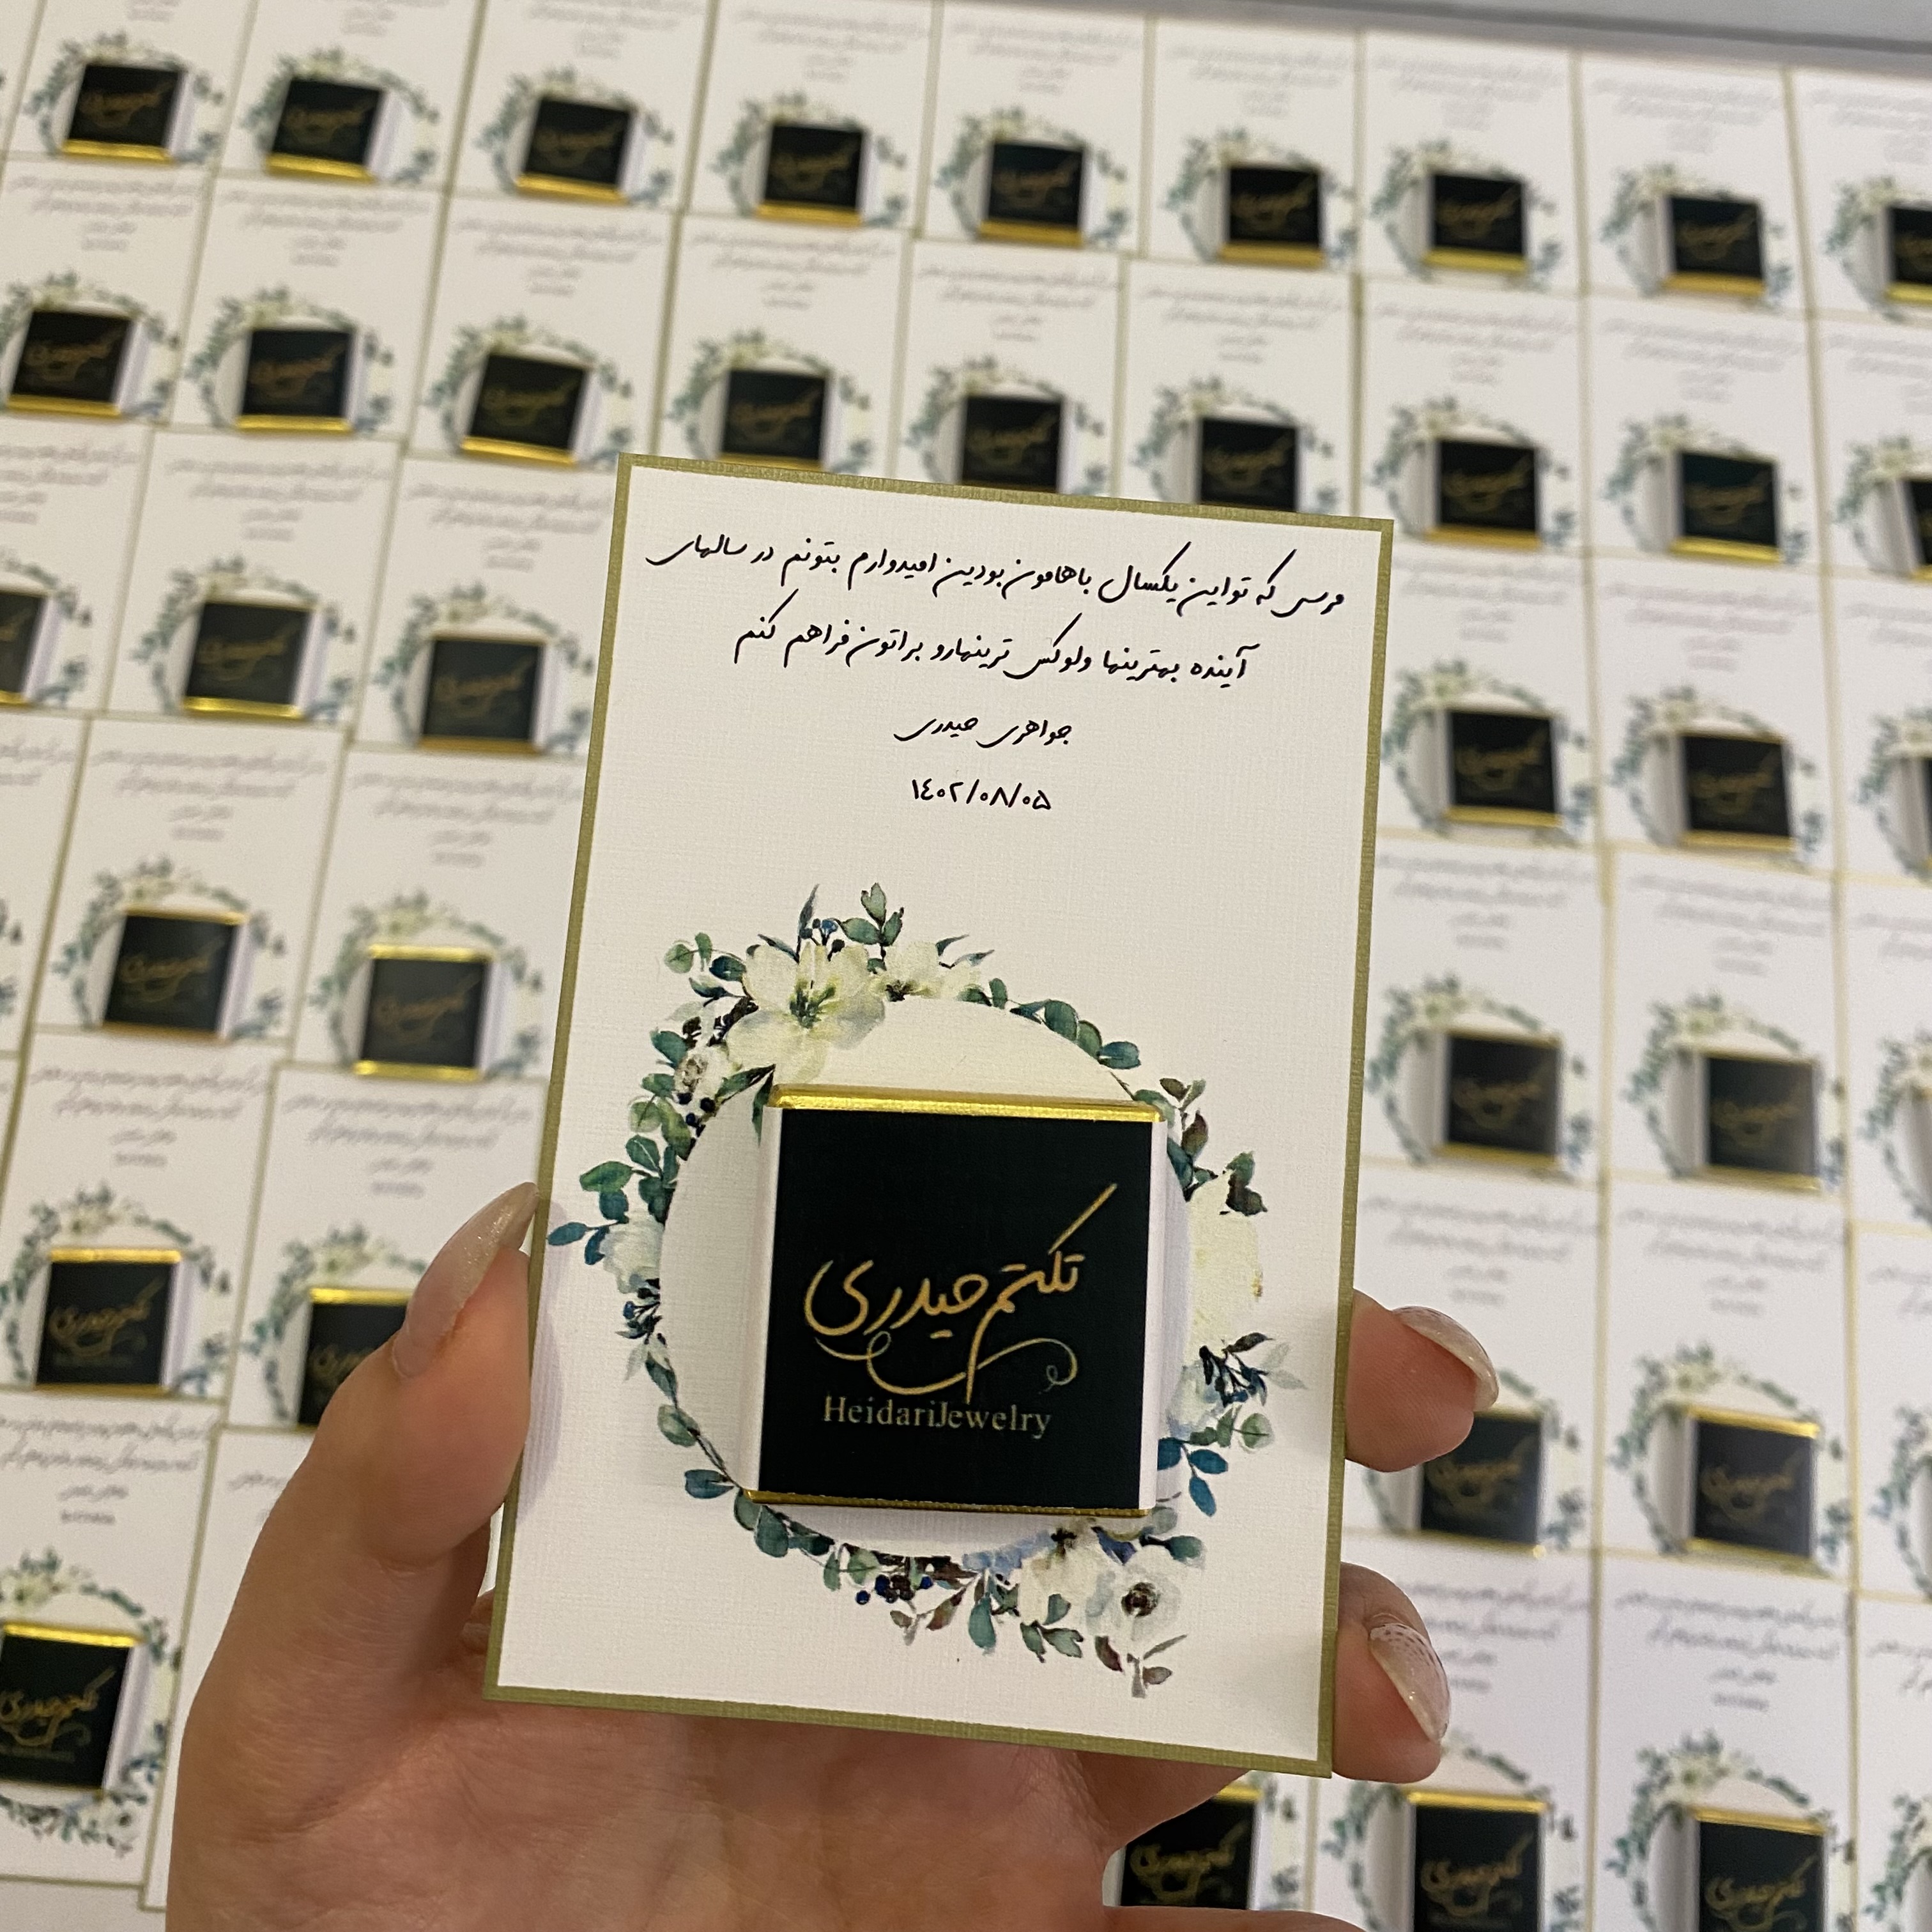 مرسی که تو این یکسال باهامون بودین امیدوارم بتونم در سالهای
آینده بهترینها و لوکس ترینهارو براتون فراهم کنم
جواهری حیدری
۱٤۰۲/۰۸/۰۵
تکتم حیدری
HeidariJewelry